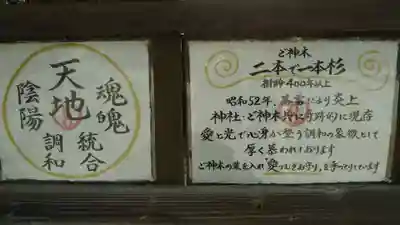 天地
魂魄
陰陽
統合
調和
ご神木
二本で一本杉
樹齢400年以上
昭和52年、落雷により炎上
神社・ご神木共に奇跡的に現存
愛と光で心身が整う調和の象徴として
厚く慕われております
ご神木の葉を入れ「愛むすびお守り」を手作りしています